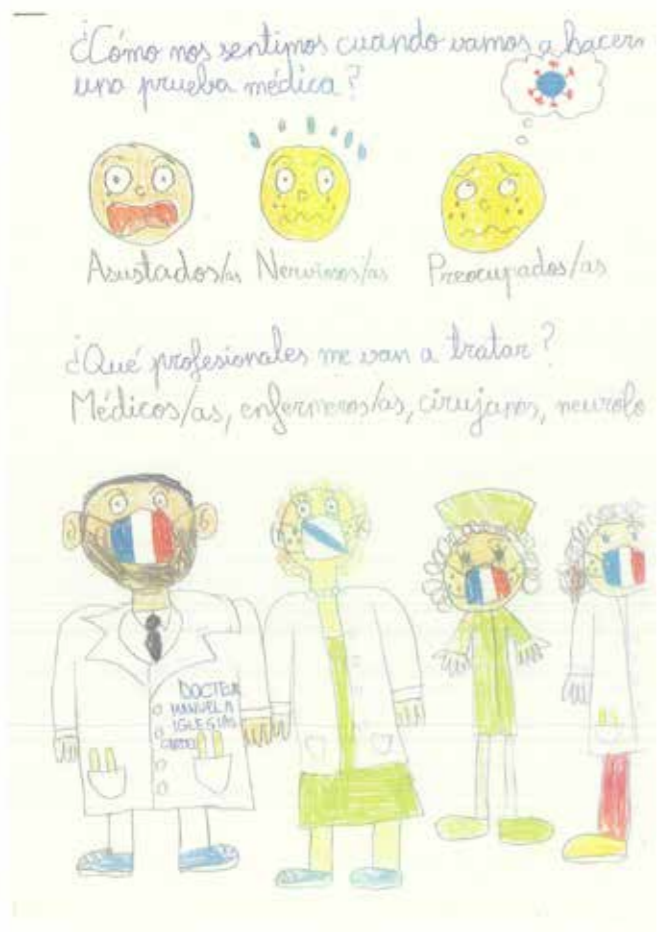 ¿Cómo nos sentimos cuando vamos a hacern
una prueba médica?
Asustados/as Nerviosos/as Preocupados/as
¿Qué profesionales me van a tratar?
Médicos/as, enfermeros/as, cirujanos, neurolo
DOCTOR
MANUEL A
IGLESIAS